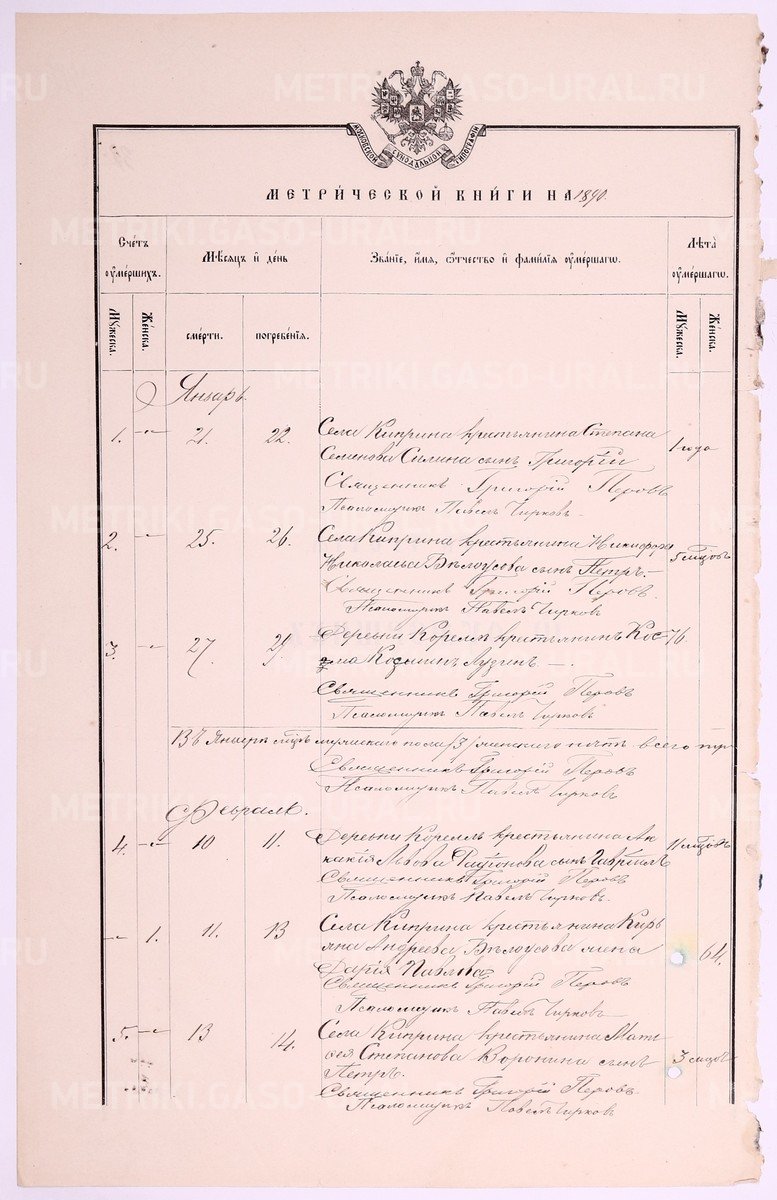 МОСКОВСКОЙ СѴНОДАЛЬНОЙ ТИПОГРАФІИ
МЕТРИ́ЧЕСКОЙ КНИ́ГИ НА 1890.
Сче́тъ оу҆ме́ршихъ.
Мѣ́сяцъ и҆ де́нь
Зва́нїе, и҆́мя, ѻ҆́тчество и҆ фами́лїя оу҆ме́ршагѡ.
Лѣ́та оу҆ме́ршагѡ.
Мꙋ́жеска.
Же́нска.
сме́рти.
погребе́нїя.
Мꙋ́жеска.
Же́нска.
Январь.
1. — 21. 22. Села Киприна крестьянина Степана 1 года
Семенова Силина сынъ Григорій
Священникъ Григорій Перовъ
Псаломщикъ Павелъ Чирковъ
2. — 25. 26. Села Киприна крестьянина Никифора 5 мцовъ
Николаева Бѣлоусова сынъ Петръ. —
Священникъ Григорій Перовъ.
Псаломщикъ Павелъ Чирковъ
3. — 27 29 Деревни Корелъ крестьянинъ Кос- 76.
ма Козминъ Лузинъ. —
Священникъ Григорій Перовъ
Псаломщикъ Павелъ Чирковъ
Въ Январѣ мцѣ мужескаго пола /3/ женскаго нѣтъ всего тр
Священникъ Григорій Перовъ
Псаломщикъ Павелъ Чирковъ
Февраль.
4. — 10 11. Деревни Корелъ крестьянина Ак- 11 мцовъ
какія Львова сынъ Гавріилъ
Священникъ Григорій Перовъ
Псаломщикъ Павелъ Чирковъ.
— 1. 11. 13 Села Киприна крестьянина Кирь- 64.
яна Андреева Бѣлоусова жена
Дарія Павлова
Священникъ Григорій Перовъ
Псаломщикъ Павелъ Чирковъ
5. — 13 14. Села Киприна крестьянина Мат- 3 мцовъ
ѳея Степанова Воронина сынъ
Петръ.
Священникъ Григорій Перовъ.
Псаломщикъ Павелъ Чирковъ
METRIKI.GASO-URAL.RU